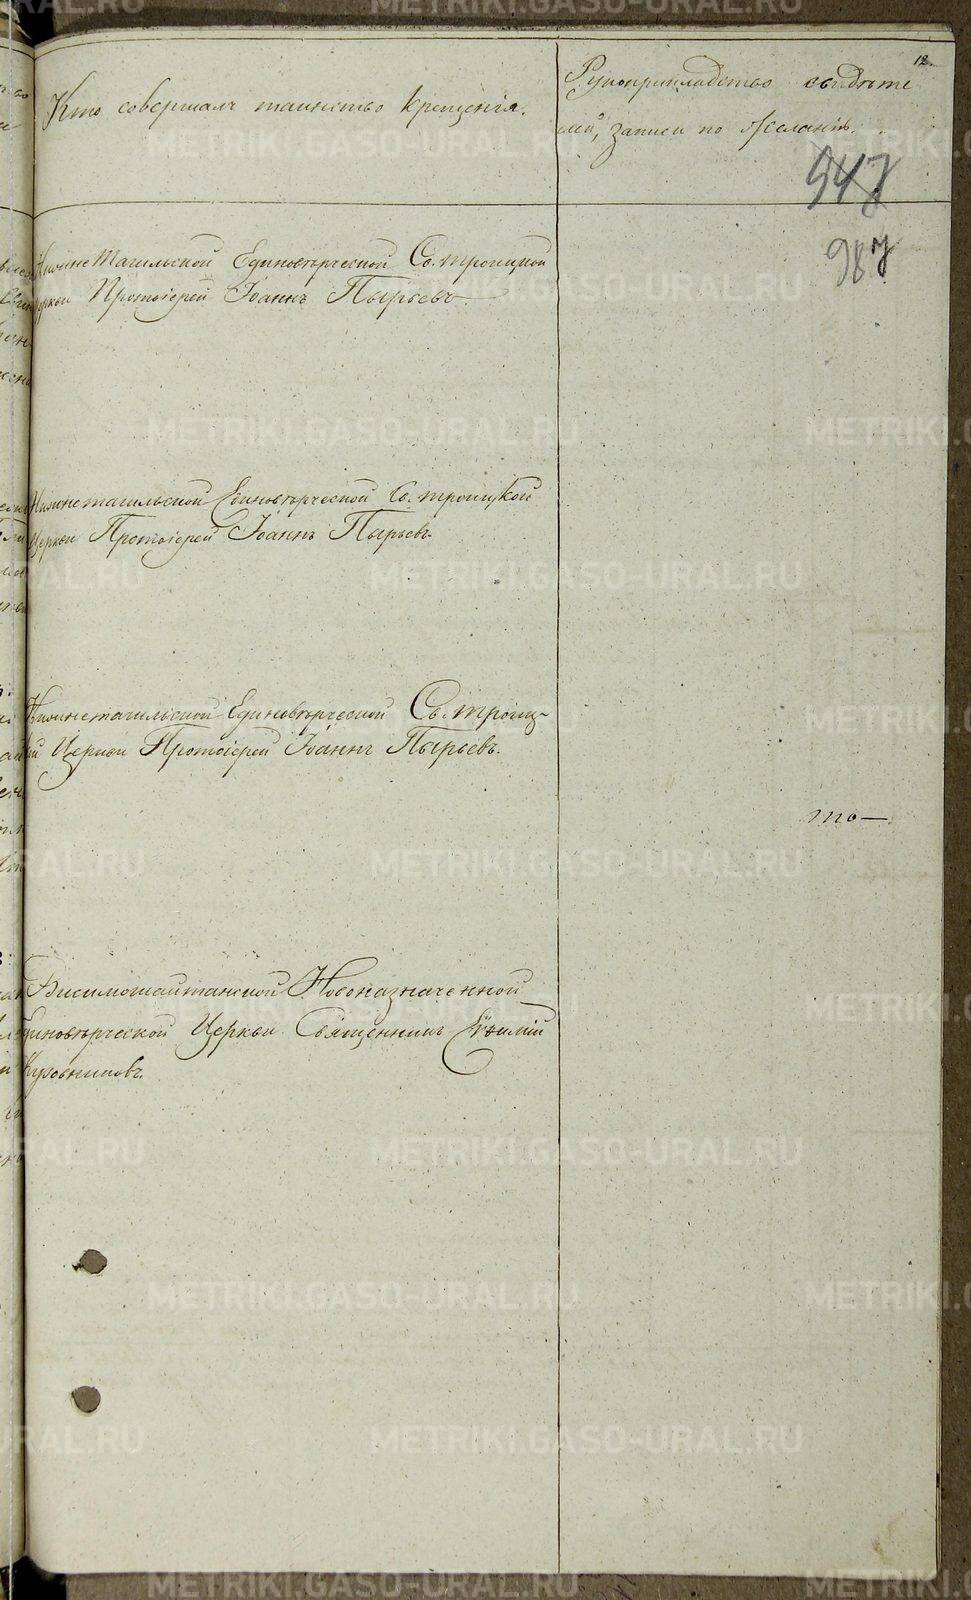 12.
Кто совершалъ таинство крещенія.
Рукоприкладство свидѣте
лей, записи по желанію.
547
987
Нижне Тагильской Единовѣрческой Св. Троицкой
Церкви Протоіерей Іоаннъ Пырьевъ
Нижнетагильской Единовѣрческой Св. Троицкой
Церкви Протоіерей Іоаннъ Пырьевъ.
Нижнетагильской Единовѣрческой Св. Троиц-
кой Церкви Протоіерей Іоаннъ Пырьевъ.
то—
Висимошайтанской Новоназначенной
Единовѣрческой Церкви Священникъ Евѳимій
METRIKI.GASO-URAL.RU